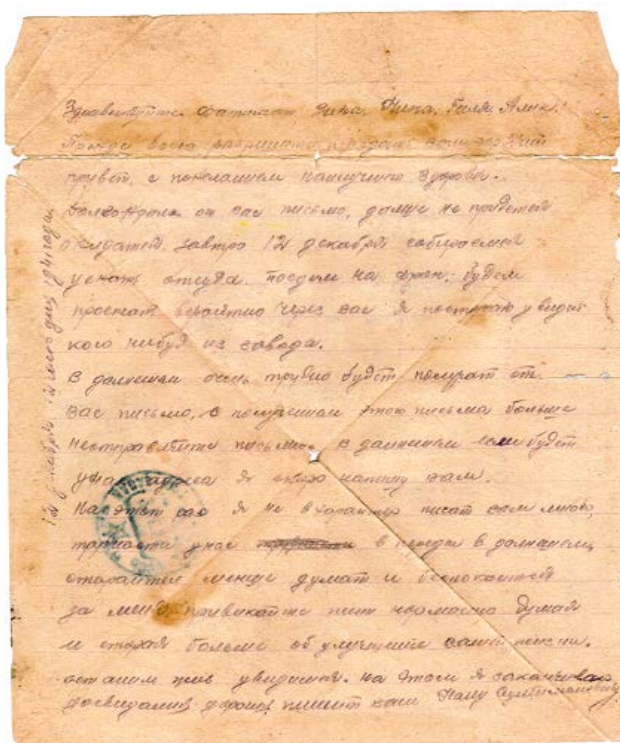 Здравствуйте Фатинат Зина, Нина, Галя Алик!
Прежде всего разришите передать вам горячий
привет, с пожеланием наилучшего здоровья.
от вас письмо, дальше не придется
ожидатся. завтра 12 декабря собираемся
уехат отсуда. поедим на фрон. будем
проежат вероятно через вас я постараю увидит
кого нибуд из завода.
В далнишем очень трудно будет получат от
вас письмо, с получением этого письма больше
не справляйте письмо. в далнишем если будет
у нас адреса я скоро напишу вам.
На этот раз я не в характер писат вам много,
трудности у нас в поезде в далнишем,
старайтес меньше думат и беспокоится
за меня привикайте жит нормално думая
и старая больше об улучшение вашей жизни.
останим жив увидимся. на этом я заканчиваю
досвидания дорогие пишет ваш
12 декабря 1941 года